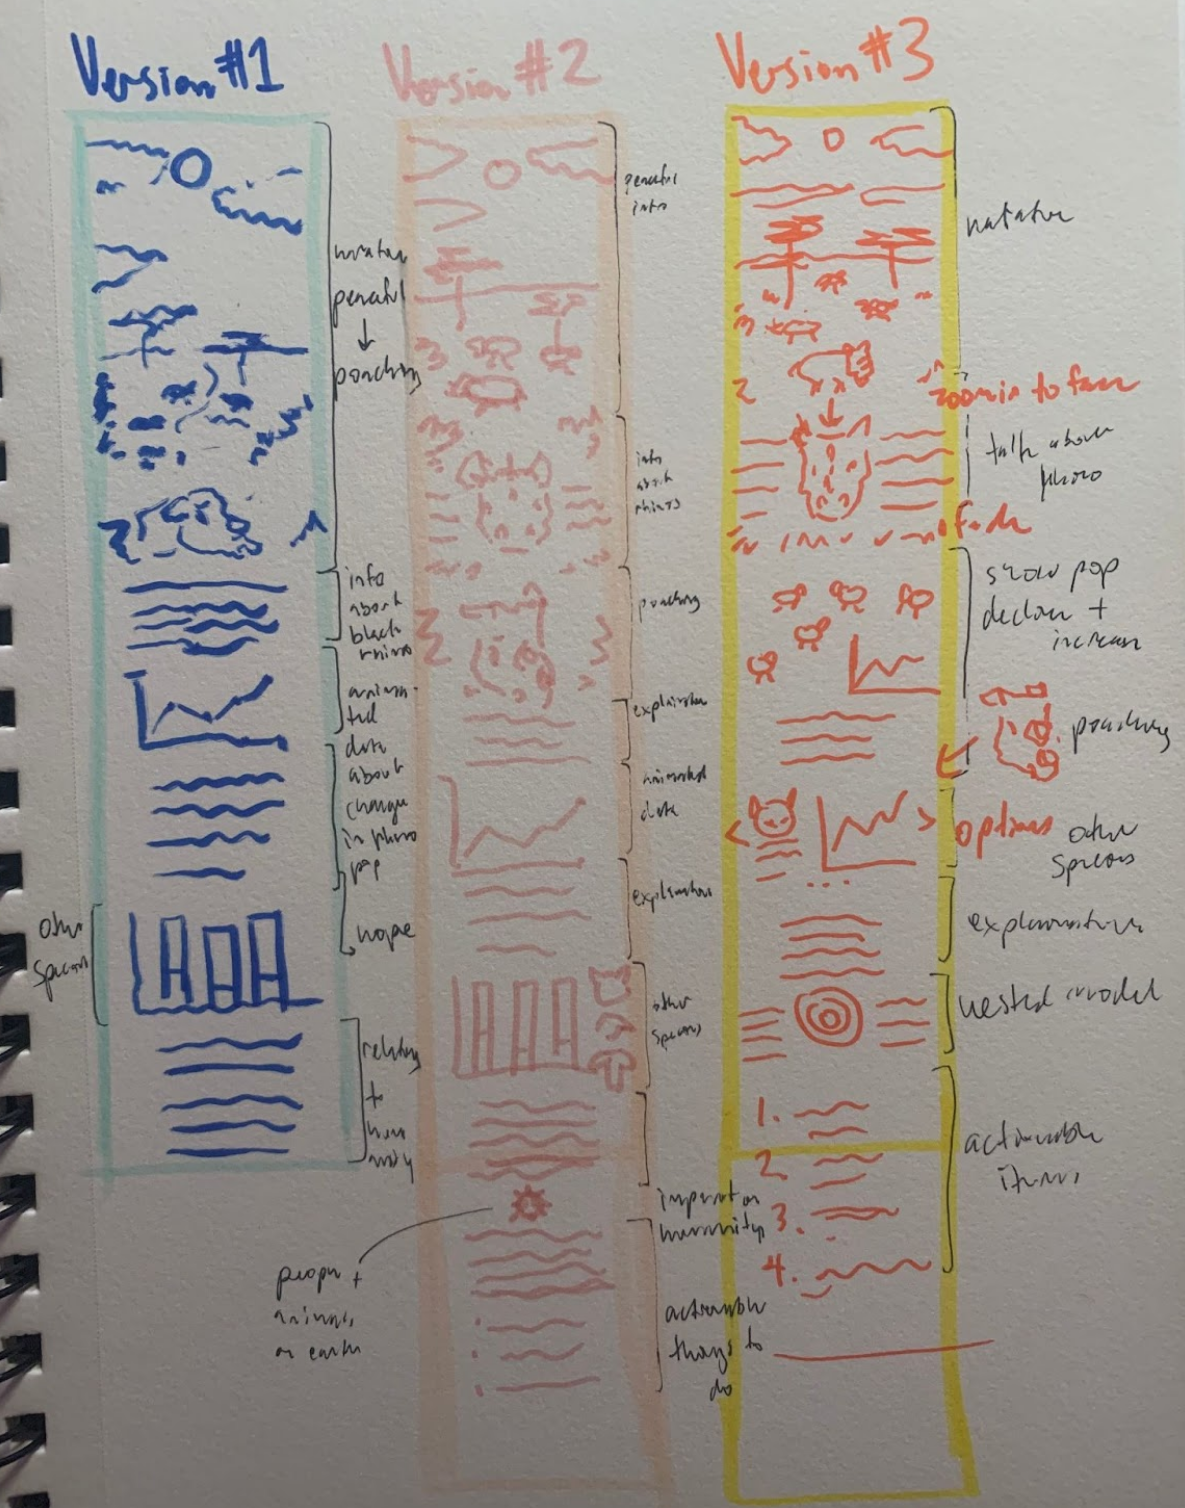 Version #1
peaceful
↓
poaching
info
about
black
rhino
anima-
ted
data
about
change
in rhino
pop
hope
other
species
relating
to
hum
anity
Version #2
peaceful
intro
info
about
rhinos
poaching
explanation
animated
data
explanation
other
species
impact on
humanity
people +
animals
on earth
actionable
things to
do
Version #3
narrative
zoom in to face
talk about
rhino
fade
show pop
decline +
increase
poaching
options
other
species
explanation
nested model
1.
2
3.
4.
actionable
items